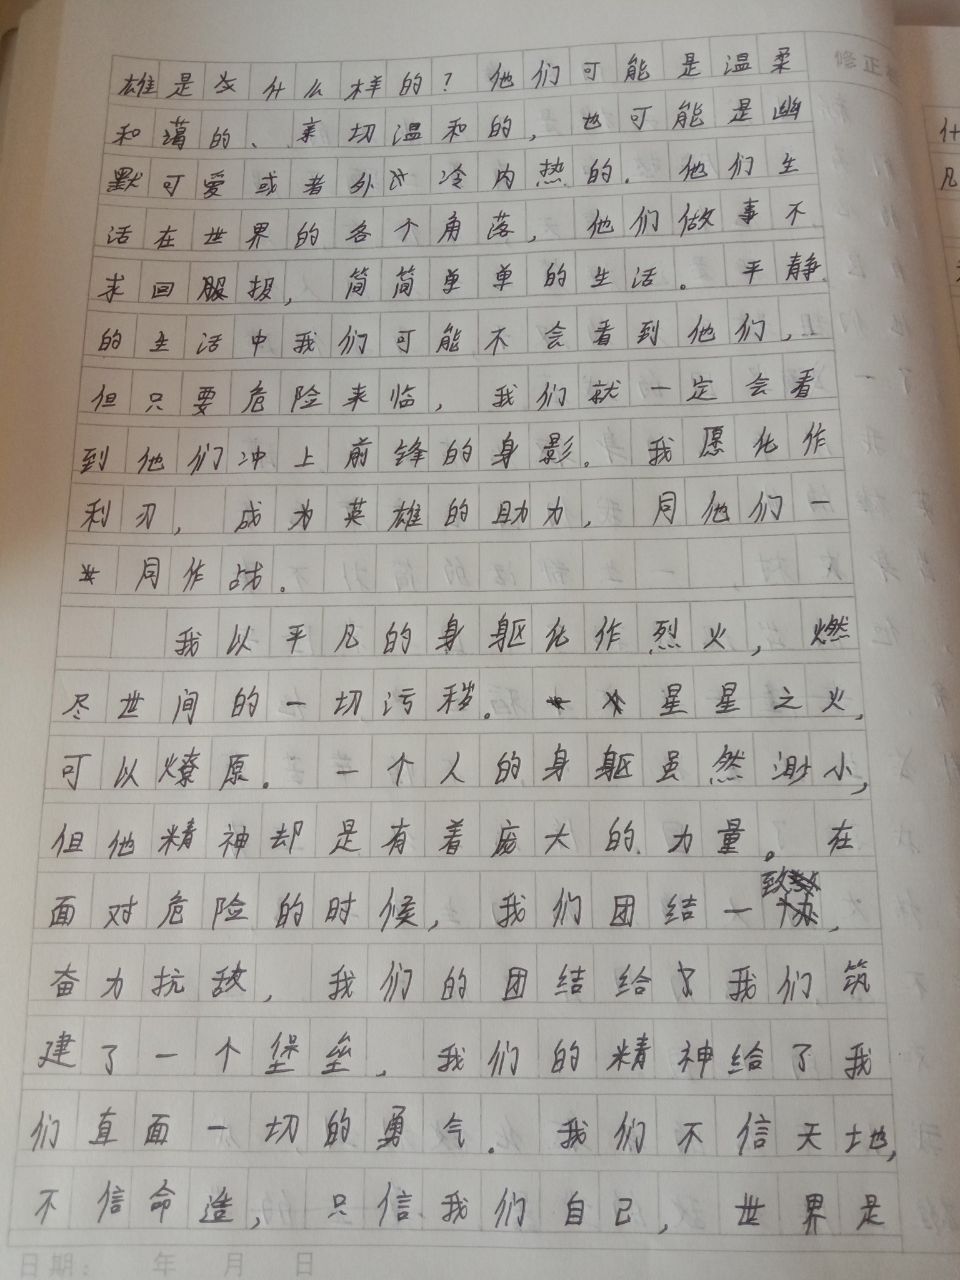 雄是什么样的？他们可能是温柔
和蔼的、亲切温和的，也可能是幽
默可爱或者外冷内热的．他们生
活在世界的各个角落，他们做事不
求回报，简简单单的生活。平静
的生活中我们可能不会看到他们，
但只要危险来临，我们就一定会看
到他们冲上前锋的身影。我愿化作
利刃，成为英雄的助力，同他们一
同作战。
我以平凡的身躯化作烈火，燃
尽世间的一切污秽。星星之火，
可以燎原．一个人的身躯虽然渺小，
但他精神却是有着庞大的力量。在
面对危险的时候，我们团结一致，
奋力抗敌，我们的团结给我们筑
建了一个堡垒，我们的精神给了我
们直面一切的勇气．我们不信天地，
不信命造，只信我们自己，世界是
日期： 年 月 日
修正
什
凡